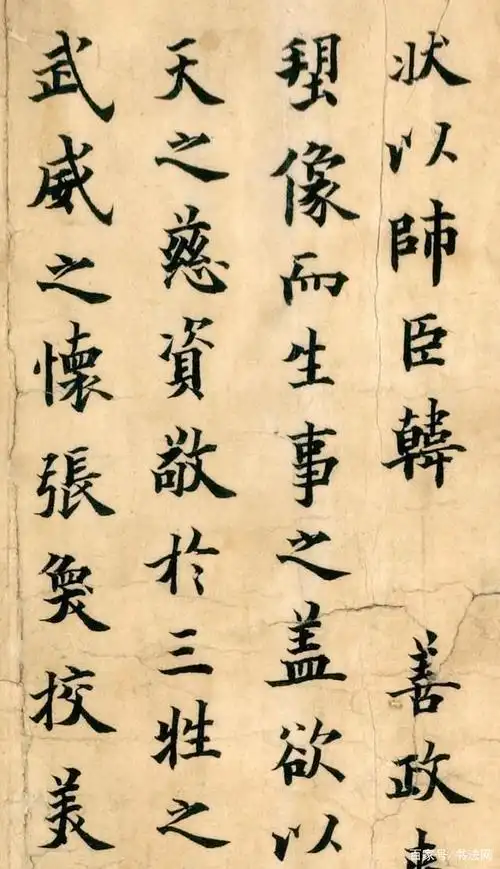 状以師臣韓 善政
像而生事之盖欲以
天之慈資敬於三牲之
武威之懷張奐挍美
百家号/书法网